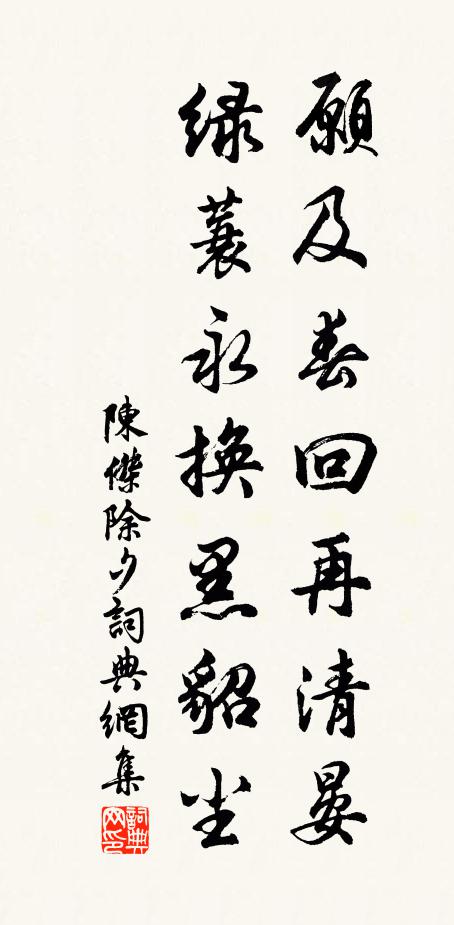 願及春回再清晏
緑蓑永換黑貂尘
陳傑除夕詞典網集
詞典网印